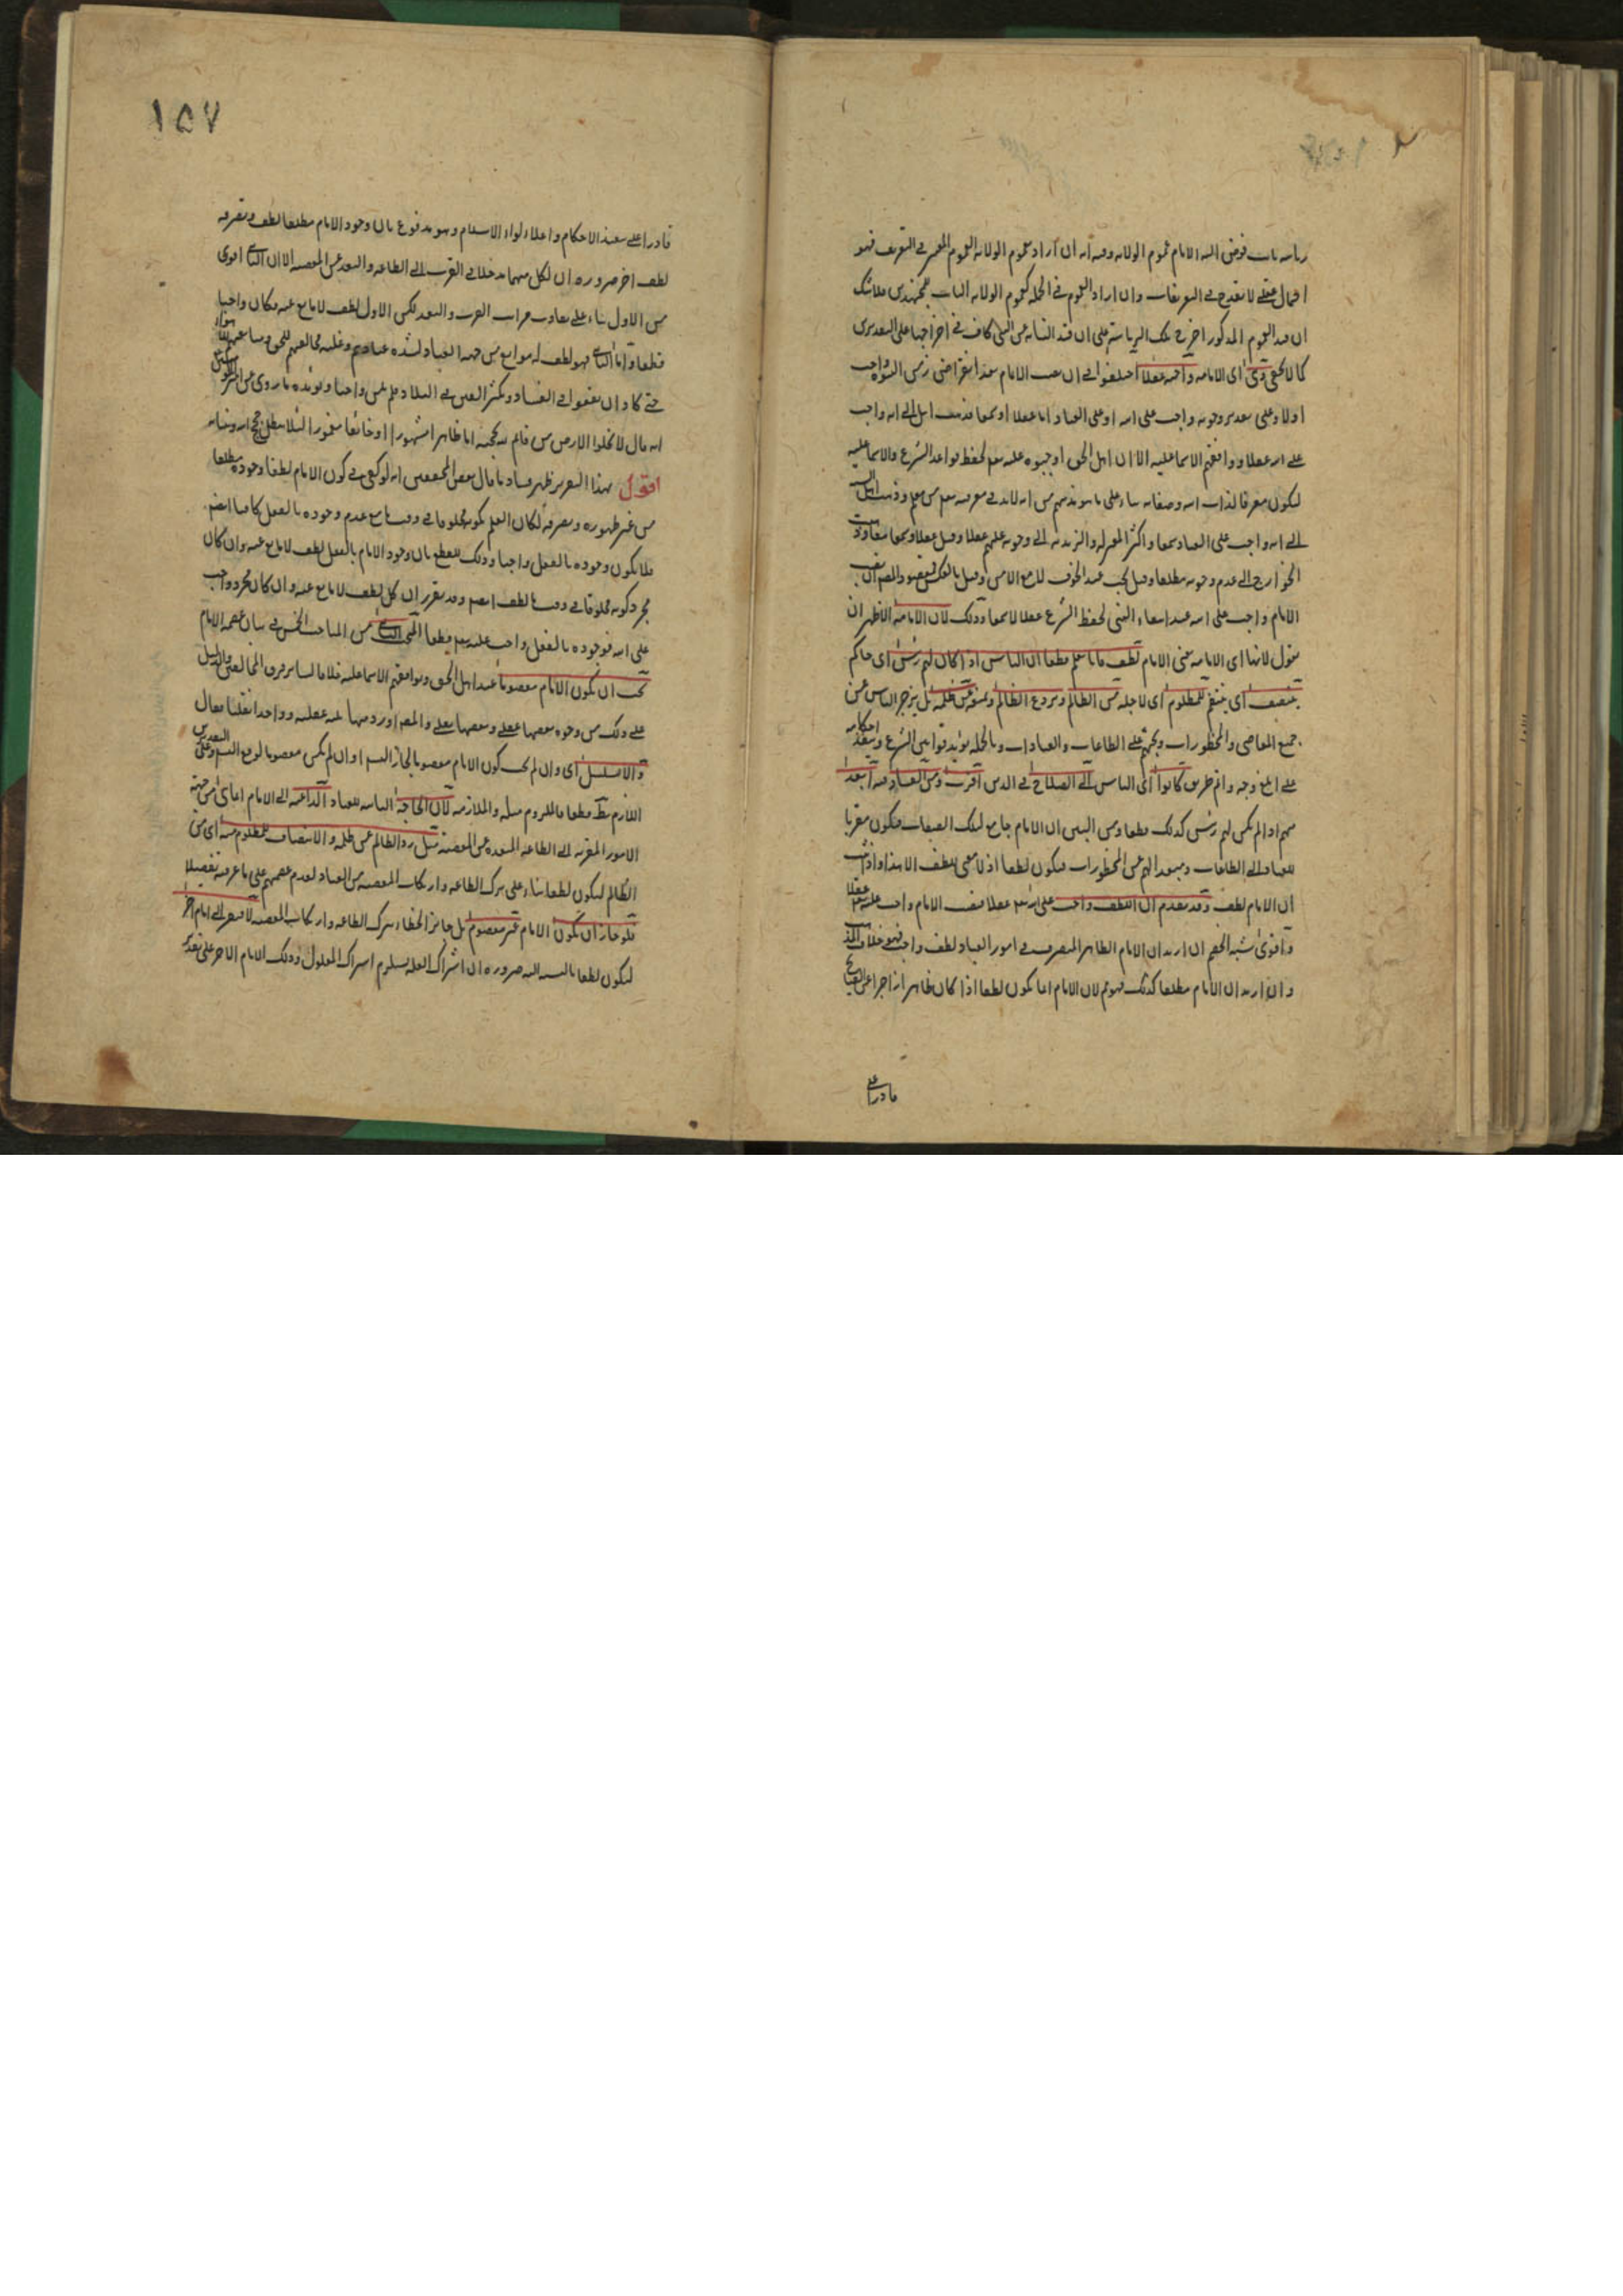 رياسة نايب فوض اليه الامام عموم الولاية وفيه انه ان اراد بعموم الولاية العموم المعتبر في التعريف فهو
احتمال عقلي لا يقدح في التعريفات وان اراد العموم في الجملة كعموم الولاية الثابت للمجتهدين فلا شك
ان قيد العموم المذكور اخرج تلك الرياسة على ان قيد النيابة عن النبي كاف في اخراجها على التقديرين
كما لا يخفى وهي اى الامامة واجبة عقلا اختلفوا في ان نصب الامام بعد انقراض زمن النبوة واجب
اولا وعلى تقدير وجوبه واجب على الله او على العباد اما عقلا او سمعا فذهب اهل الحق الى انه واجب
على الله عقلا ووافقهم الاسماعيلية الا ان اهل الحق اوجبوه عليه تعالى لحفظ قواعد الشرع والاسماعيلية
ليكون معرفا لذات الله وصفاته بناء على ما هو مذهبهم من انه لابد في معرفته تعالى من معلم وذهب اهل السنة
الى انه واجب على العباد سمعا واكثر المعتزلة والزيدية الى وجوبه عليهم عقلا وقيل عقلا وسمعا معا وذهبت
الخوارج الى عدم وجوبه مطلقا وقيل يجب عند الخوف لا مع الامن وقيل بالعكس فمقصود المصنف ان نصب
الامام واجب على الله عند انتفاء النبي لحفظ الشرع عقلا لا سمعا وذلك لان الامامة الاظهر ان
يقول لانها اى الامامة يعنى الامام لطف فانا نعلم قطعا ان الناس اذا كان لهم رئيس اى حاكم
ينتصف اى ينتقم للمظلوم اى لاجله من الظالم ويردع الظالم ويمنعه عن ظلمه بل يزجر الناس عن
جميع المعاصى والمحظورات ويحثهم على الطاعات والعبادات وبالجملة يؤيد قوانين الشرع وينفذ احكامه
على ابلغ وجه واتم طريق كانوا اى الناس الى الصلاح في الدين اقرب ومن الفساد فيه ابعد
منهم اذا لم يكن لهم رئيس كذلك قطعا ومن البين ان الامام جامع لتلك الصفات فيكون مقربا
للعباد الى الطاعات ومبعدا لهم عن المحظورات فيكون لطفا اذ لا معنى للطف الا هذا واذا ثبت
ان الامام لطف وقد تقدم ان اللطف واجب على الله تعالى عقلا فنصب الامام واجب عليه تعالى عقلا
واقوى شبه الخصم ان اريد ان الامام الظاهر المتصرف في امور العباد لطف واجب فهو خلاف المذهب
وان اريد ان الامام مطلقا كذلك فهو مم لان الامام انما يكون لطفا اذا كان ظاهرا زاجرا عن القبايح
قادرا على
١٥٧
قادرا على تنفيذ الاحكام واعلاء لواء الاسلام وهو مدفوع بان وجود الامام مطلقا لطف وتصرفه
لطف اخر ضرورة ان لكل منهما مدخلا في القرب الى الطاعة والبعد عن المعصية الا ان الثاني اقوى
من الاول بناء على تفاوت مراتب القرب والبعد لكن الاول لطف لا مانع عنه فكان واجبا
قطعا واما الثاني فهو لطف له موانع من جهة العباد لشدة عنادهم وغلبة مخالفتهم للحق ومتابعتهم للاهواء
حتى كاد ان يقعوا في الفساد ويكثر الفتن في البلاد فلم يكن واجبا ويؤيده ما روى عن امير المؤمنين
انه قال لا تخلوا الارض من قائم لله بحجة اما ظاهرا مشهورا او خائفا مغمورا لئلا يبطل حجج الله وبيناته
اقول بهذا التقرير ظهر فساد ما قال بعض المحققين انه لو كفى في كون الامام لطفا وجوده مطلقا
من غير ظهوره وتصرفه لكان العلم بكونه مخلوقا في وقت ما مع عدم وجوده بالفعل كافيا ايضا
فلا يكون وجوده بالفعل واجبا وذلك للقطع بان وجود الامام بالفعل لطف لا مانع عنه وان كان
مجرد كونه مخلوقا في وقت ما لطف ايضا وقد تقرر ان كل لطف لا مانع عنه وان كان مجردا واجب
على الله فوجوده بالفعل واجب عليه تعالى قطعا المبحث الثاني من المباحث الخمس في بيان عصمة الامام
يجب ان يكون الامام معصوما عند اهل الحق ووافقهم الاسماعيلية خلافا لسائر فرق المخالفين والدليل
على ذلك من وجوه بعضها عقلي وبعضها نقلي والمصنف اورد منها ثلثة عقلية وواحدا نقليا فقال
والا تسلسل اى وان لم يجب كون الامام معصوما لجاز التسلسل او ان لم يكن معصوما لوقع التسلسل وعلى التقديرين
اللازم بط قطعا فالملزوم مثله والملازمة لان الحاجة الثابتة للعباد الداعية الى الامام انما هى من جهة
الامور المقربة الى الطاعة المبعدة عن المعصية مثل رد الظالم عن ظلمه والانتصاف للمظلوم منه اى من
الظالم ليكون لطفا بناء على ترك الطاعة وارتكاب المعصية من العباد لعدم عصمتهم على ما عرفت تفصيلا
فلو جاز ان يكون الامام غير معصوم بل جائز الخطاء بترك الطاعة وارتكاب المعصية لافتقر الى امام اخر
ليكون لطفا بالنسبة اليه ضرورة ان اشتراك العلة يستلزم اشتراك المعلول وذلك الامام الاخر على تقدير